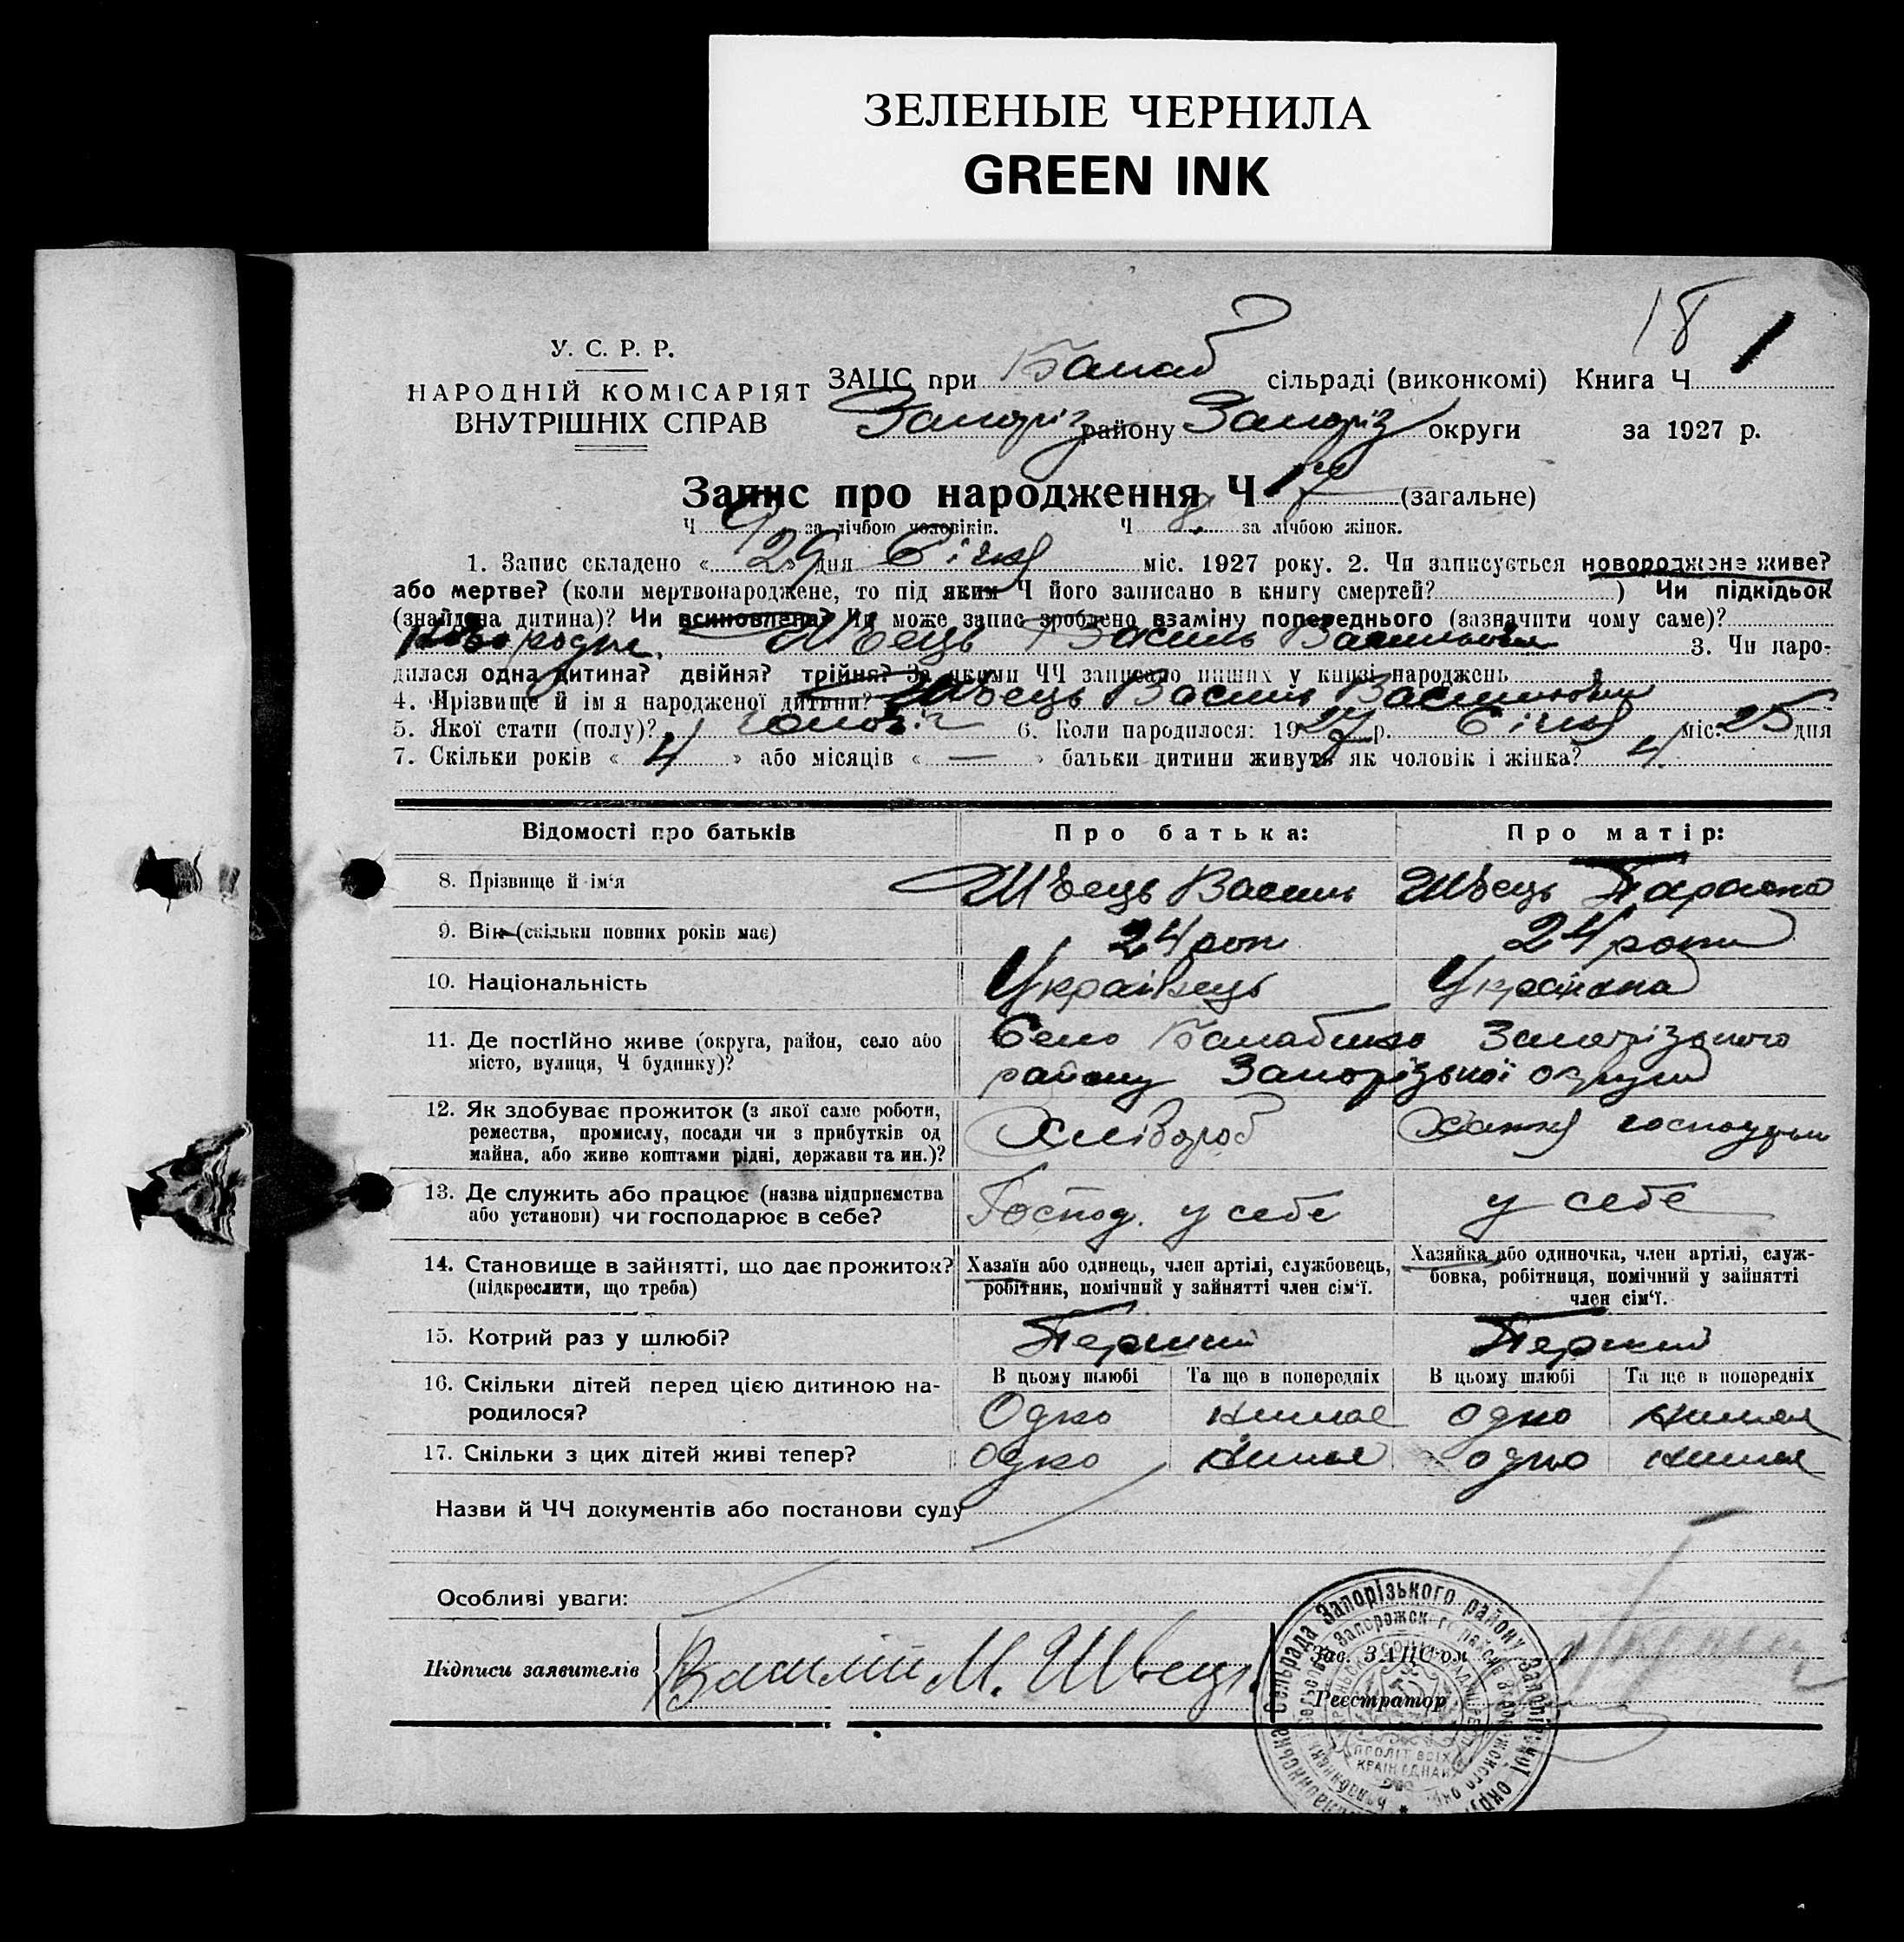 ЗЕЛЕНЫЕ ЧЕРНИЛА
GREEN INK
18 1
У. С. Р. Р.
НАРОДНІЙ КОМІСАРІЯТ
ВНУТРІШНІХ СПРАВ
ЗАЦС при Балаб сільраді (виконкомі) Книга Ч
Запоріз району Запоріз округи за 1927 р.
Запис про народження Ч 17 (загальне)
Ч 9 за лічбою чоловіків. Ч 8 за лічбою жінок.
1. Запис складено « 29 » дня Січня міс. 1927 року. 2. Чи записується новороджене живе?
або мертве? (коли мертвонароджене, то під яким Ч його записано в книгу смертей? ) Чи підкідьок
(знайдена дитина)? Чи всиновлена? Чи може запис зроблено взаміну попереднього (зазначити чому саме)?
Новородже. Швець Василь Васильович 3. Чи наро-
дилася одна дитина? двійня? трійня? За якими ЧЧ записано инших у книзі народжень
4. Прізвище й імя народженої дитини? Швець Василь Васильович
5. Якої стати (полу)? чолов. 6. Коли народилося: 1927 р. Січня міс. 25 дня
7. Скільки років « 4 » або місяців « — » батьки дитини живуть як чоловік і жінка? 4
Відомості про батьків Про батька: Про матір:
8. Прізвище й ім'я Швець Василь Швець Параска
9. Вік (скільки повних років має) 24 рок 24 роки
10. Національність Українець Українка
11. Де постійно живе (округа, район, село або Село Балабине Запорізького
місто, вулиця, Ч будинку)? району Запорізької округи
12. Як здобуває прожиток (з якої саме роботи,
ремества, промислу, посади чи з прибутків од Хлібороб Хатня господиня
майна, або живе коштами рідні, держави та ин.)?
13. Де служить або працює (назва підприємства
або установи) чи господарює в себе? Господ. у себе у себе
14. Становище в зайнятті, що дає прожиток? Хазяїн або одинець, член артілі, службовець, Хазяйка або одиночка, член артілі, служ-
(підкреслити, що треба) робітник, помічний у зайнятті член сім'ї. бовка, робітниця, помічний у зайнятті
член сім'ї.
15. Котрий раз у шлюбі? Перший Перший
16. Скільки дітей перед цією дитиною на- В цьому шлюбі Та ще в попередніх В цьому шлюбі Та ще в попередніх
родилося? Одно немае одно немае
17. Скільки з цих дітей живі тепер? Одно немае одно немае
Назви й ЧЧ документів або постанови суду
Особливі уваги:
Підписи заявителів Василий М. Швець. Зав. ЗАЦС'ом
Реєстратор
сільрада Запорізького району Запорізької окр
ПРОЛІТ ВСІХ
КРАЇН ЄДНАЙ